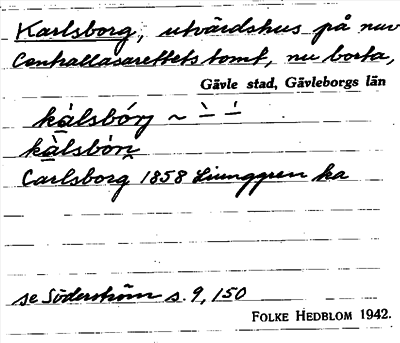 Karlsborg, utvärdshus på nuv
Centrallasarettets tomt, nu borta,
Gävle stad, Gävleborgs län
kàlsbórj ~ ̀ ́
kàlsbòrj
Carlsborg 1858 Ljunggren ka
se Söderström s. 9, 150
FOLKE HEDBLOM 1942.